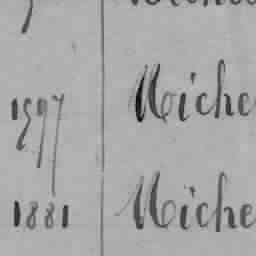 1597 Miche
1881 Miche